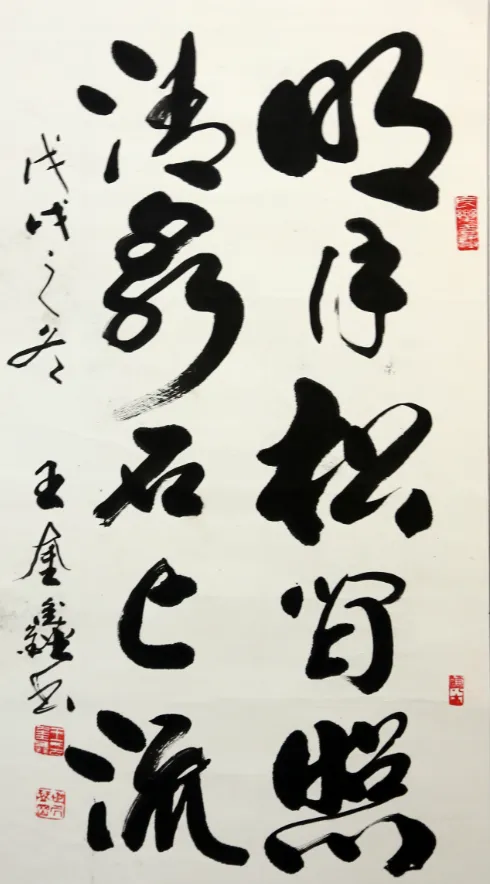 明月松间照
清泉石上流
戊戌之冬
王金鑫书